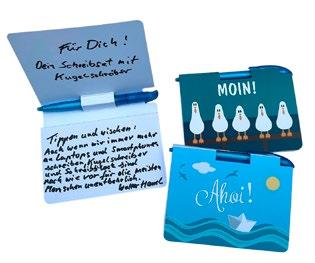 Für Dich!
Dein Schreibset mit
Kugelschreiber
Tippen und wischen:
Auch wenn wir immer mehr
an Laptops und Smartphones
schreiben, Kugelschreiber
und Schreibblock sind
nach wie vor für die meisten
Menschen unentbehrlich.
MOIN!
Ahoi!